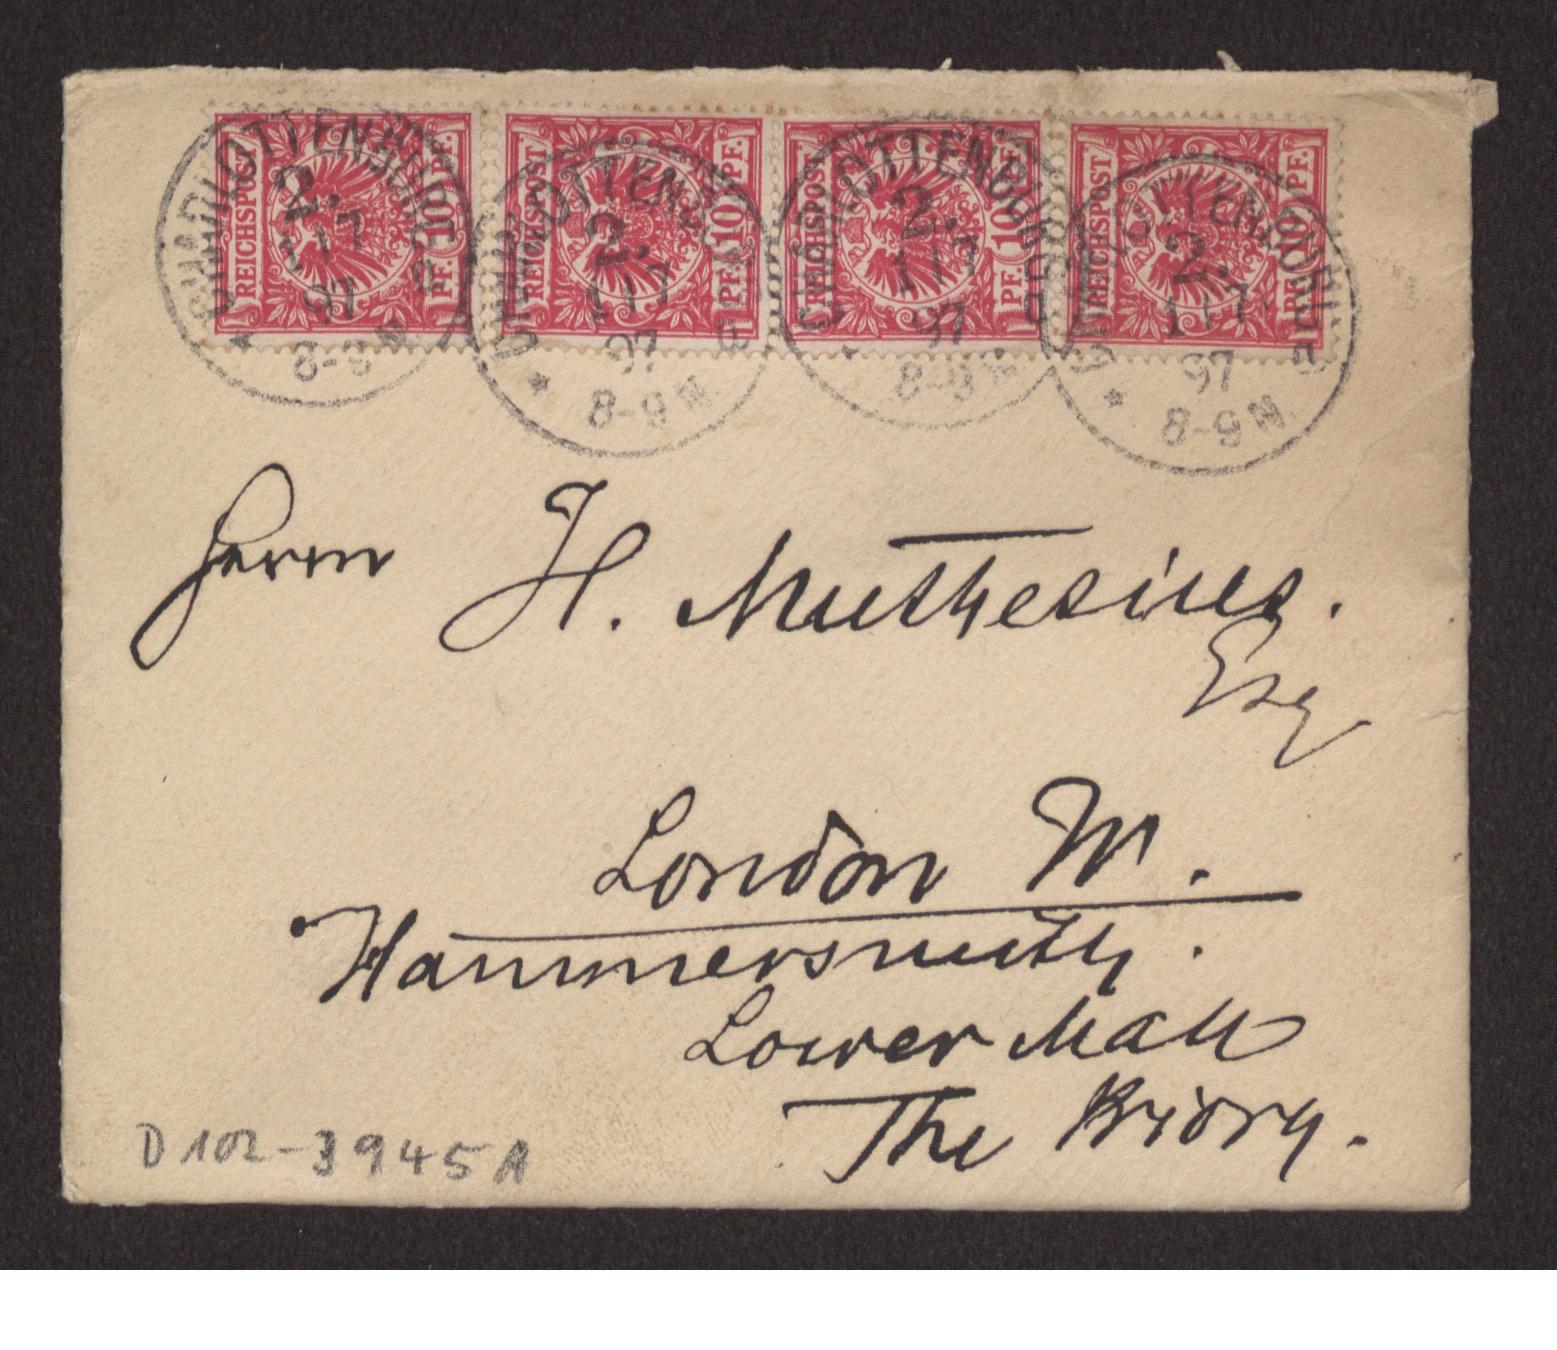 REICHSPOST 10 PF. PF. REICHSPOST 10 PF. PF. REICHSPOST 10 PF. PF. REICHSPOST 10 PF. PF.
CHARLOTTENBURG CHARLOTTENBURG CHARLOTTENBURG CHARLOTTENBURG
2. 2. 2. 2.
11 7 11 7 11 7 11 7
97 97 97 97
* 8-9 N * 8-9 N * 8-9 N * 8-9 N
Herrn H. Muthesius.
Esq
London W.
Hammersmith.
Lower Mall
The Briory.
D 102-3945A